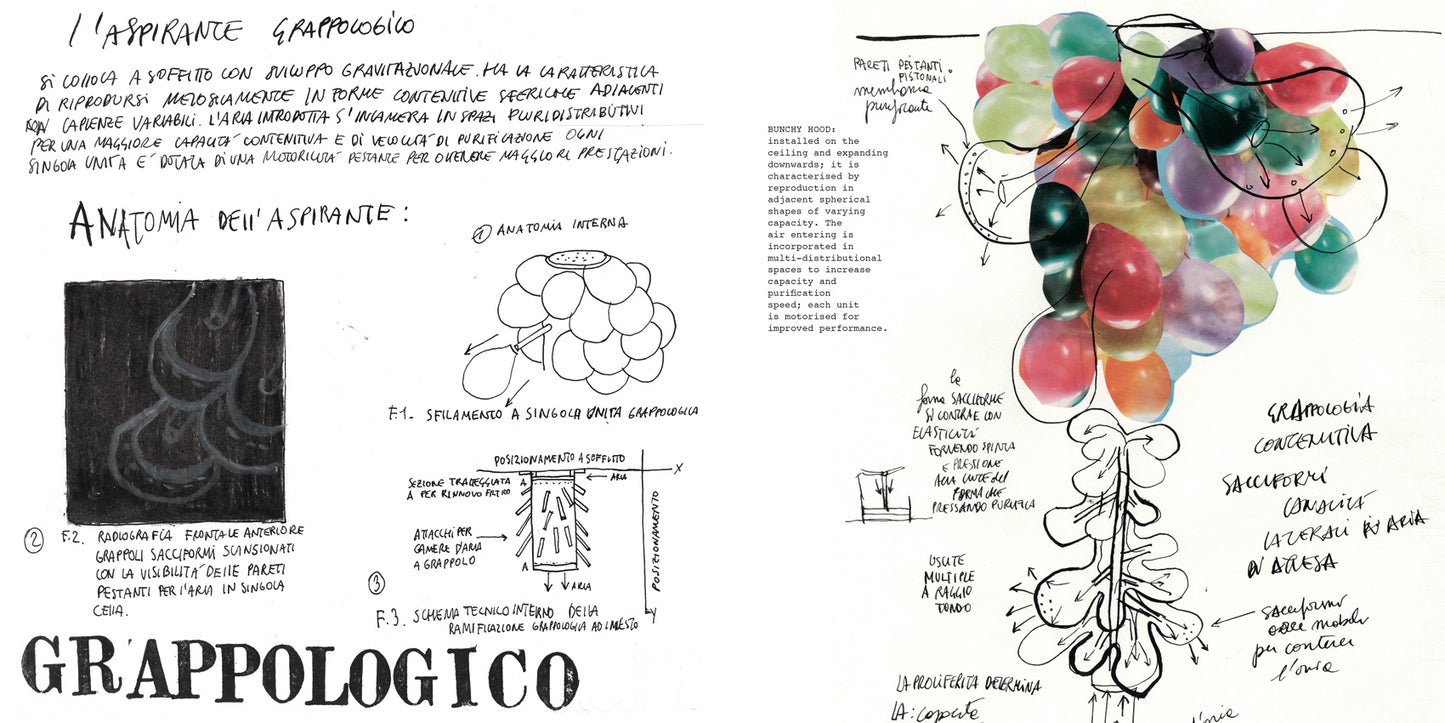 l'ASPIRANTE GRAPPOLOGICO
SI COLLOCA A SOFFITTO CON SVILUPPO GRAVITAZIONALE. HA LA CARATTERISTICA
DI RIPRODURSI MELOSICAMENTE IN FORME CONTENITIVE SFERICHE ADIACENTI
CAPIENZE VARIABILI. L'ARIA INTRODOTTA S'INCAMERA IN SPAZI PLURIDISTRIBUTIVI
PER UNA MAGGIORE CAPACITÀ CONTENITIVA E DI VELOCITÀ DI PURIFICAZIONE OGNI
SINGOLA UNITÀ E' DOTATA DI UNA MOTORICITÀ PESTANTE PER OTTENERE MAGGIORI PRESTAZIONI.
ANATOMIA DELL'ASPIRANTE:
1 ANATOMIA INTERNA
F.1- SFILAMENTO A SINGOLA UNITA GRAPPOLOGICA
2 F.2. RADIOGRAFIA FRONTALE ANTERIORE
GRAPPOLI SACCIFORMI SCANSIONATI
CON LA VISIBILITÀ DELLE PARETI
PESTANTI PER l'ARIA IN SINGOLA
CELLA.
POSIZIONAMENTO A SOFFITTO
X
SEZIONE TRATTEGGIATA
A PER RINNOVO FILTRO
A
ARIA
ATTACCHI PER
CAMERE D'ARIA
A GRAPPOLO
A
ARIA
POSIZIONAMENTO
Y
3
F.3. SCHEMA TECNICO INTERNO DELLA
RAMIFICAZIONE GRAPPOLOGICA AD INNESTO
GRAPPOLOGICO
BUNCHY HOOD:
installed on the
ceiling and expanding
downwards; it is
characterised by
reproduction in
adjacent spherical
shapes of varying
capacity. The
air entering is
incorporated in
multi-distributional
spaces to increase
capacity and
purification
speed; each unit
is motorised for
improved performance.
PARETI PESTANTI
PISTONALI
membrana
purificante
la
forma SACCIFORME
SI CONTRAE CON
ELASTICITÀ
FORNENDO SPINTA
E PRESSIONE
FORMA CHE
PRESSANDO PURIFICA
USCITE
MULTIPLE
A RAGGIO
TONDO
GRAPPOLOGIA
CONTENITIVA
SACCIFORMI
CANALITÀ
LATERALI ARIA
IN ATTESA
sacciformi
mobili
per contenere
l'aria
LA PROLIFERITÀ DETERMINA
LA: capacità
l'aria